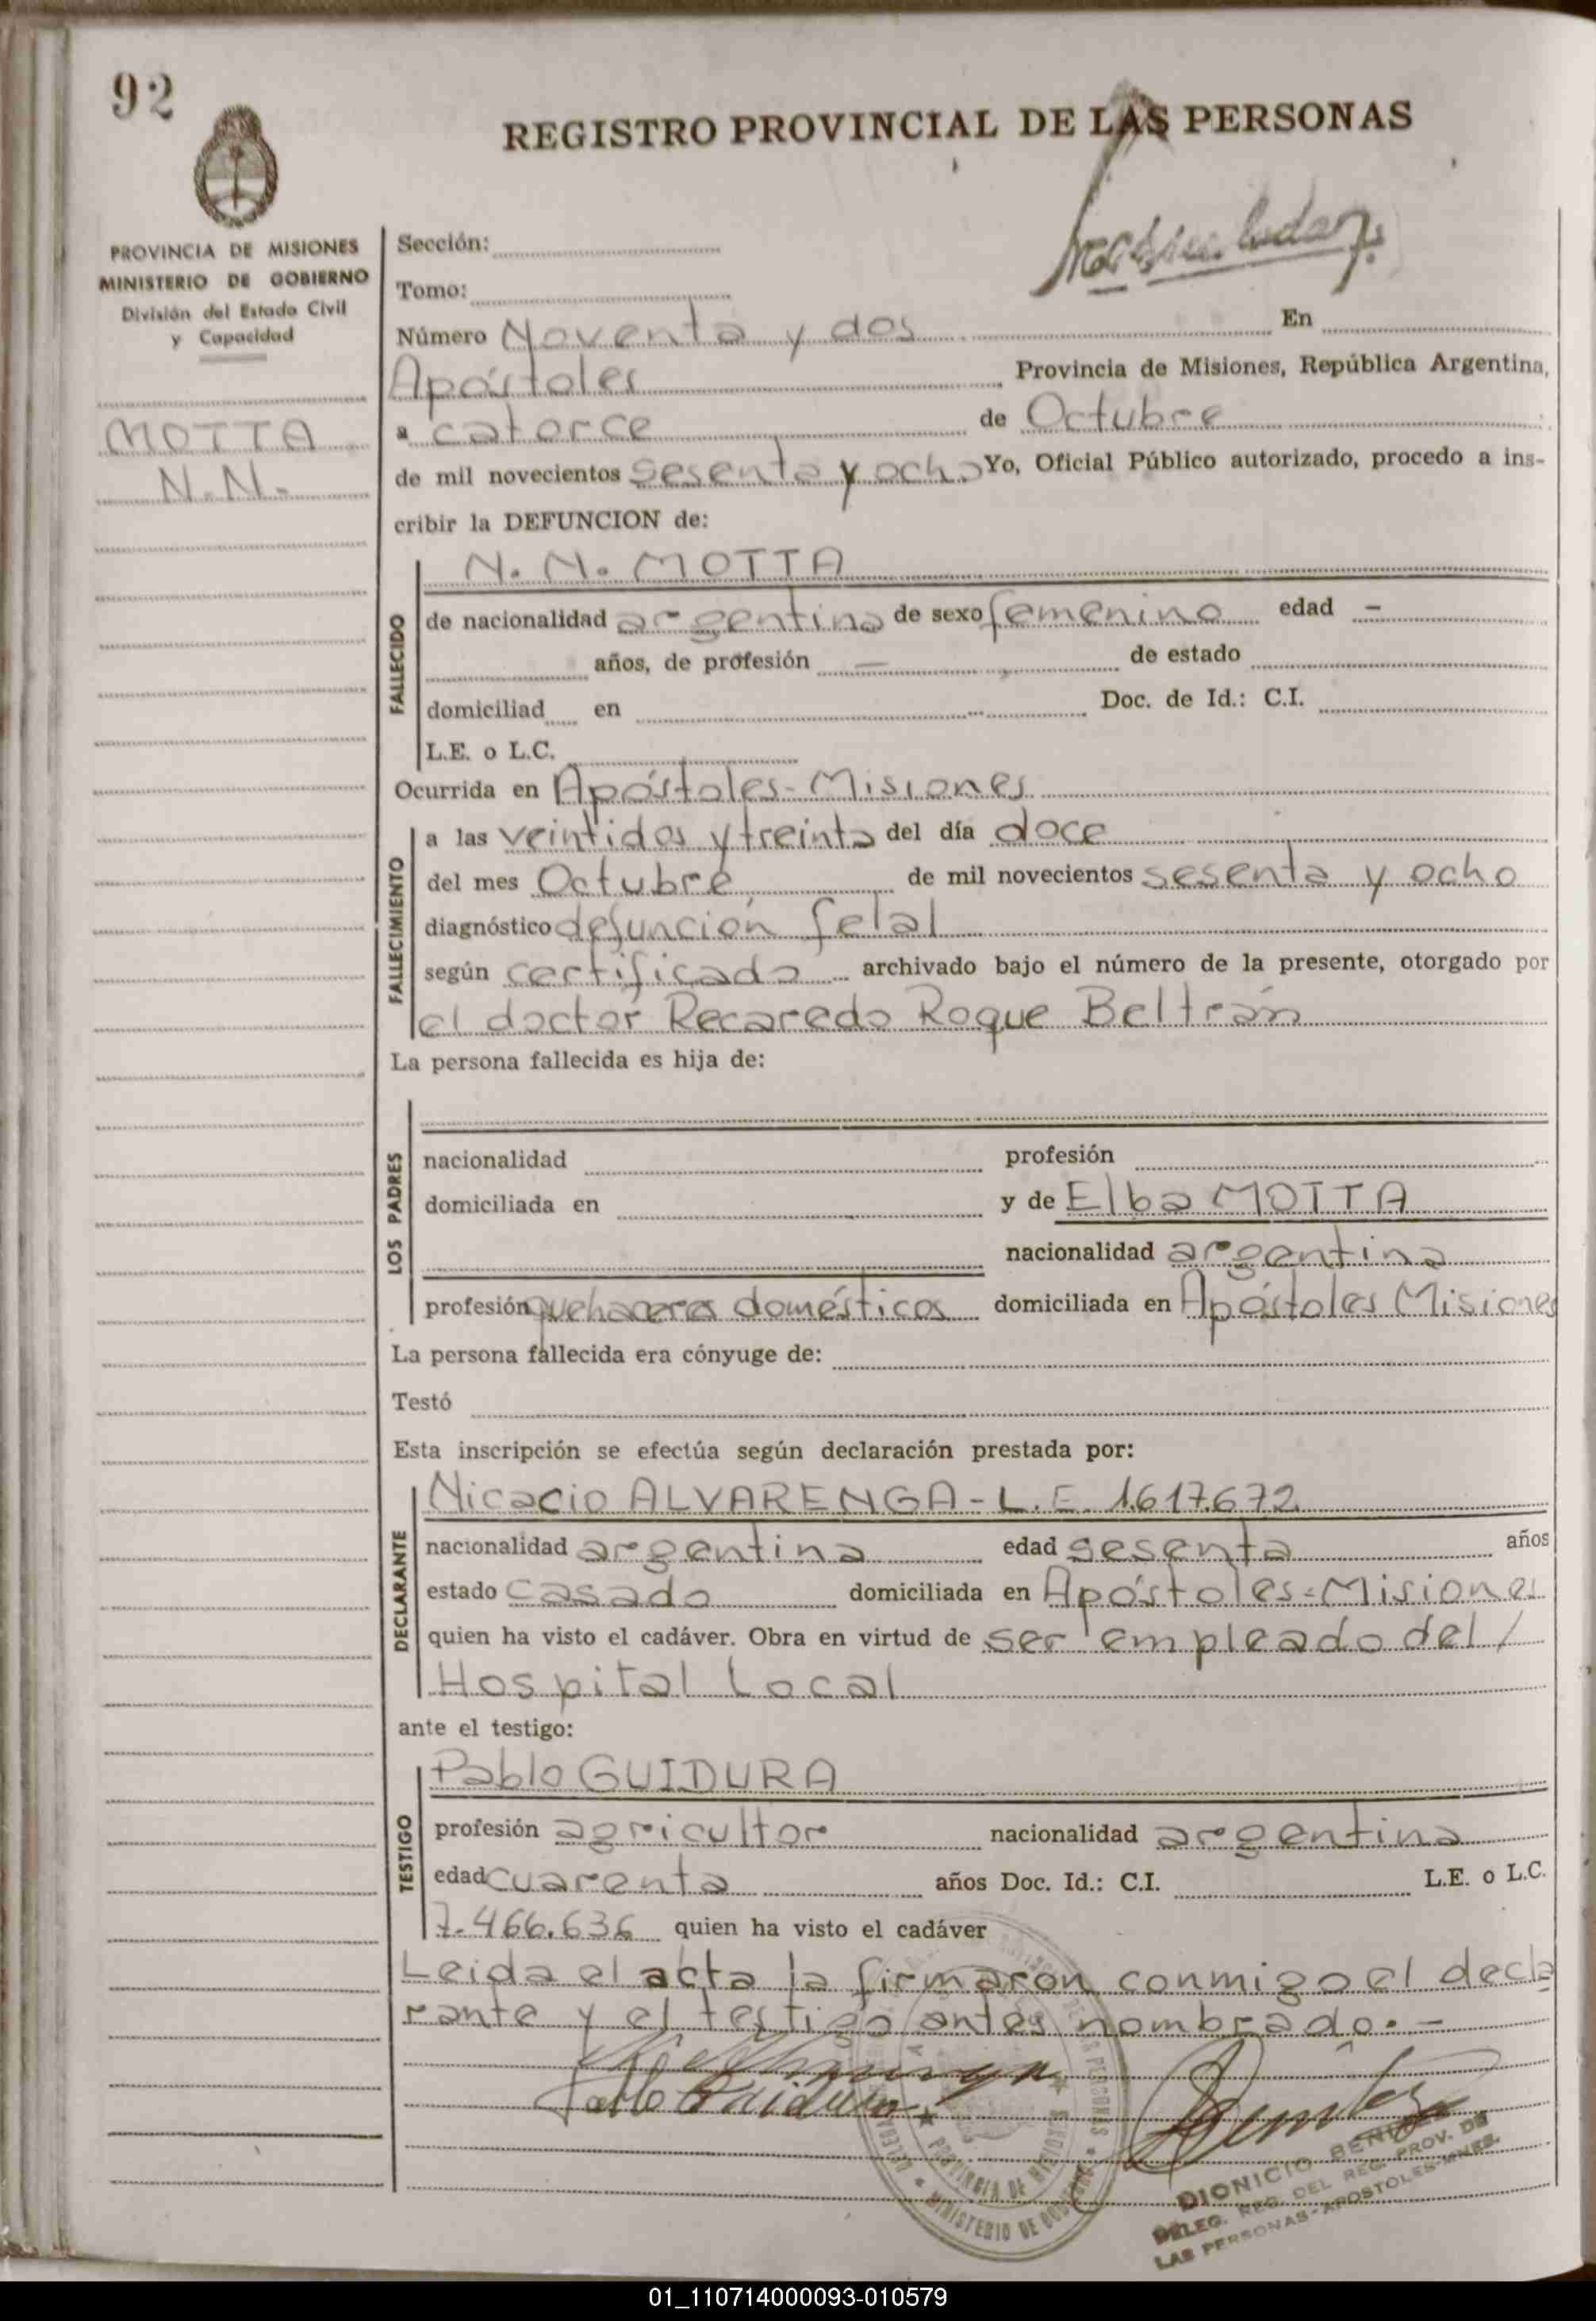 92
REGISTRO PROVINCIAL DE LAS PERSONAS
PROVINCIA DE MISIONES
MINISTERIO DE GOBIERNO
División del Estado Civil
y Capacidad
MOTTA
N.N.
Sección:
Tomo:
Número Noventa y dos En
Apóstoles Provincia de Misiones, República Argentina,
a catorce de Octubre
de mil novecientos sesenta y ocho Yo, Oficial Público autorizado, procedo a ins-
cribir la DEFUNCION de:
FALLECIDO
N. N. MOTTA
de nacionalidad argentina de sexo femenino edad —
años, de profesión — de estado
domiciliad en Doc. de Id.: C.I.
L.E. o L.C.
Ocurrida en Apóstoles - Misiones
FALLECIMIENTO
a las veintidos y treinta del día doce
del mes Octubre de mil novecientos sesenta y ocho
diagnóstico defunción fetal
según certificado archivado bajo el número de la presente, otorgado por
el doctor Recaredo Roque Beltrán
La persona fallecida es hija de:
LOS PADRES
nacionalidad profesión
domiciliada en y de Elba MOTTA
nacionalidad argentina
profesión quehaceres domésticos domiciliada en Apóstoles Misiones
La persona fallecida era cónyuge de:
Testó
Esta inscripción se efectúa según declaración prestada por:
DECLARANTE
Nicacio ALVARENGA - L.E. 1.617.672
nacionalidad argentina edad sesenta años
estado casado domiciliada en Apóstoles = Misiones
quien ha visto el cadáver. Obra en virtud de ser empleado del /
Hospital Local
ante el testigo:
TESTIGO
Pablo GUIDURA
profesión agricultor nacionalidad argentina
edad cuarenta años Doc. Id.: C.I. L.E. o L.C.
7.466.636 quien ha visto el cadáver
Leida el acta la firmaron conmigo el decla
rante y el testigo antes nombrado. —
Pablo Guidura
PROVINCIA DE MISIONES
MINISTERIO DE GOBIERNO
DIONICIO BENITEZ
DELEG. REG. DEL REG. PROV. DE
LAS PERSONAS - APOSTOLES - MNES.
01_110714000093-010579